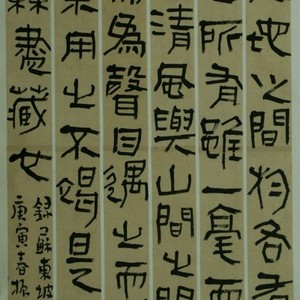 地之間物各有
所有雖一毫而
清風與山間之
為聲目遇之而
用之不竭是
盡藏也
錄蘇東坡
庚寅春振